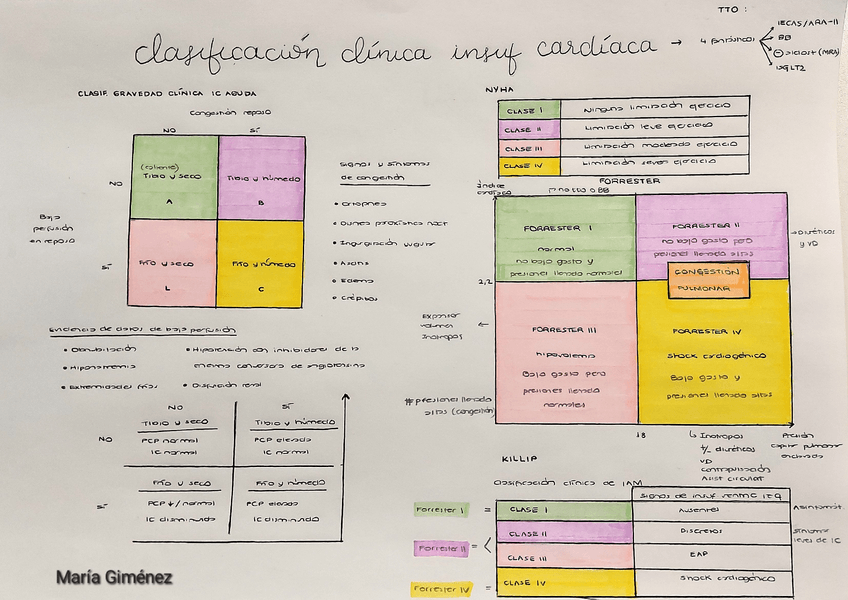 TTO:
clasificación clínica insuf cardíaca → 4 fantásticos
IECAS/ARA-II
BB
iSGLT2
CLASIF. GRAVEDAD CLÍNICA IC AGUDA
Congestión reposo
NO SÍ
NO
(caliente)
Tibio y seco
A
Tibio y húmedo
B
Baja
perfusión
en reposo
SÍ
Frío y seco
L
Frío y húmedo
C
Signos y síntomas
de congestión
• Ortopnea
• Ingurgitación yugular
• Ascitis
• Edema
• Crépitos
Evidencia de datos de baja perfusión
• Obnubilación
• Hiponatremia
• Extremidades frías
• Hipotensión con inhibidores de la
enzima conversora de angiotensina
• Disfunción renal
NO SÍ
NO
Tibio y seco
PCP normal
IC normal
Tibio y húmedo
PCP elevada
IC normal
SÍ
Frío y seco
PCP ↓/normal
IC disminuido
Frío y húmedo
PCP elevada
IC disminuido
María Giménez
NYHA
CLASE I Ninguna limitación ejercicio
CLASE II Limitación leve ejercicio
CLASE III Limitación moderada ejercicio
CLASE IV Limitación severa ejercicio
FORRESTER
índice
cardíaco
FORRESTER I
normal
no bajo gasto y
presiones llenado normales
FORRESTER II
no bajo gasto pero
presiones llenado altas
→ Diuréticos
y VD
CONGESTIÓN
PULMONAR
2,2
Expansor
volumen
Inotropos
FORRESTER III
hipovolemia
Bajo gasto pero
presiones llenado
normales
FORRESTER IV
shock cardiogénico
Bajo gasto y
presiones llenado altas
# presiones llenado
altas (congestión)
18
↳ Inotropos
+/- diuréticos
VD
contrapulsación
Asist circulat
Presión
capilar pulmonar
enclavada
KILLIP
Clasificación clínica de IAM
Signos de insuf ventric izq
Forrester I = CLASE I Ausentes Asintomát.
Forrester II = < CLASE II Discretos síntomas
leves de IC
CLASE III EAP
Forrester IV = CLASE IV shock cardiogénico